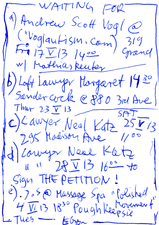 WAITING FOR
a) Andrew Scott Vogl @
("Voglautism.com") 319
Fri 17 V 13 1400 Grand
w/ Matthias Reuter
b) Loft Lawyer Margaret 1430
Sandercock @ 880 3rd Ave.
Thur 23 V 13
SAT
c) Lawyer Neal Katz 25 V 13
295 Madison Ave. 11,00
d) Lawyer Neal Katz
" " 28 V 13 1600 to
Sign THE PETITION!
e) J.S. @ Massage Spa "Polished
4 VI 13 1830 Movement"
Poughkeepsie
Tues